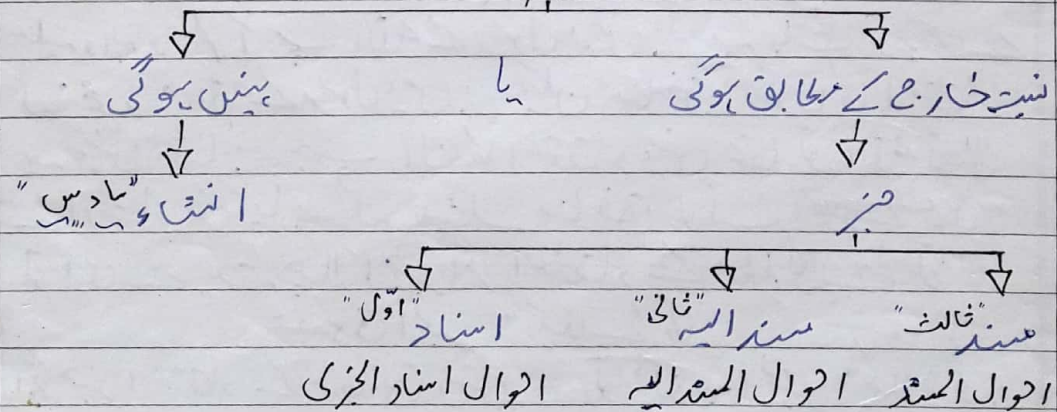 نسبت خارج کے مطابق ہوگی یا نہیں ہوگی
خبر انشاء "سادس"
مسند "ثالث" مسند الیہ "ثانی" اسناد "اوّل"
احوال المسند احوال المسند الیہ احوال اسناد الخبری